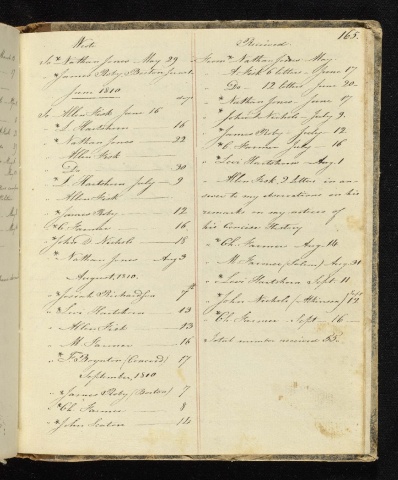 165.
Wrote
To * Nathan Jones - May 29
" * James Roby, Boston June
June 1810
days
To - Allen Fisk June 16
" * L Hartshorn - 16
" * Nathan Jones - 22
Allen Fisk -
Do - 30
" * L Hartshorn July - 9
" Allen Fisk -
" * James Roby - 12
" * C. Farmer - 16
" * John D Nichols - 18
" Nathan Jones Aug 3
August, 1810.
" * Joseph Richardson 7th
" * Levi Hartshorn - 13
" Allen Fisk - 13
" M. Farmer - 16
" * F. Boynton (Concord) 17
September, 1810
" * James Roby (Boston) 7
" * Ch. Farmer - 8
" * John Seaton - 14
Received
From * Nathan Jones - May
" A. Fisk 6 letters - June 17
" Do - 12 letters June 20 -
" * Nathan Jones - June 17
" * John D Nichols - July 9.
" * James Roby - July 12
" * C Farmer July - 16
" * Levi Hartshorn - Aug. 1
" Allen Fisk, 2 Letters in an-
swer to my observations on his
remarks on my notices of
his Concise History
" * Ch. Farmer - Aug. 14
" M. Farmer (Salem) Aug. 31
" * Levi Hartshorn Sept. 11.
" * John Nichols (Atkinson) Sept 12
" * Ch. Farmer Sept. 16 -
Total number received 55.